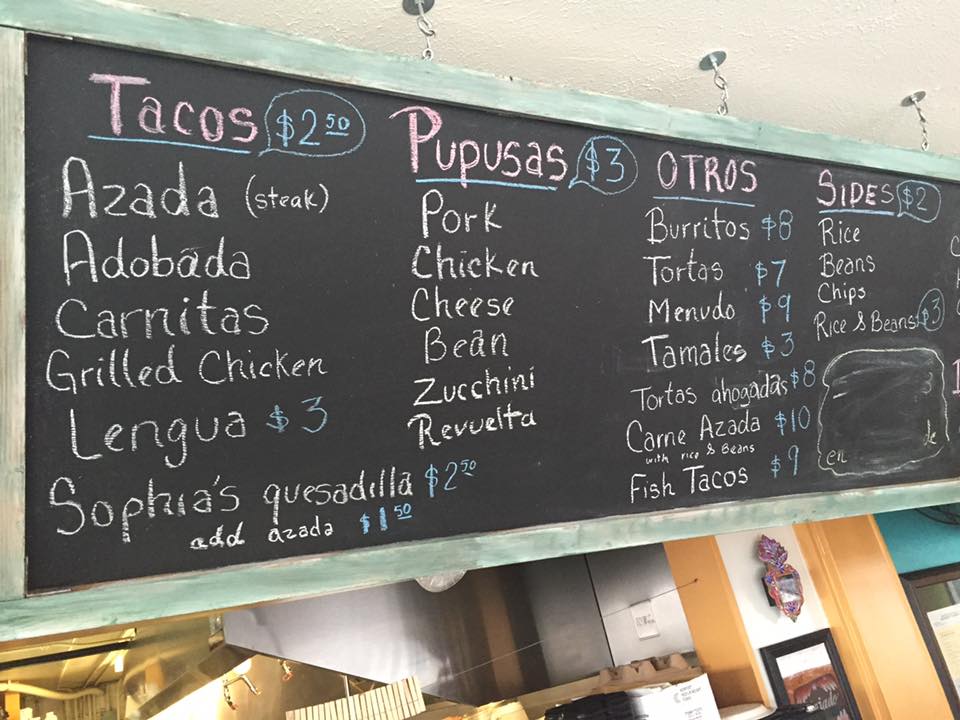 Tacos $2.50
Azada (steak)
Adobada
Carnitas
Grilled Chicken
Lengua $3
Sophia's quesadilla $2.50
add azada $1.50
Pupusas $3
Pork
Chicken
Cheese
Bean
Zucchini
Revuelta
OTROS
Burritos $8
Tortas $7
Menudo $9
Tamales $3
Tortas ahogadas $8
Carne Azada $10
with rice & Beans
Fish Tacos $9
SIDES $2
Rice
Beans
Chips
Rice & Beans $3
en de